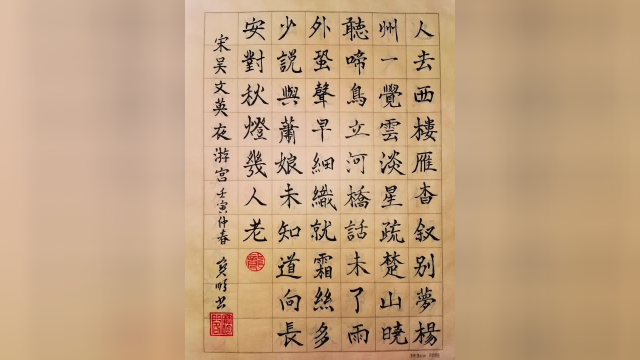 人去西樓雁杳叙别夢楊
州一覺雲淡星疏楚山曉
聽啼鳥立河橋話未了雨
外蛩聲早細織就霜絲多
少説與蕭娘未知道向長
安對秋燈幾人老
宋吴文英夜游宫壬寅仲春书